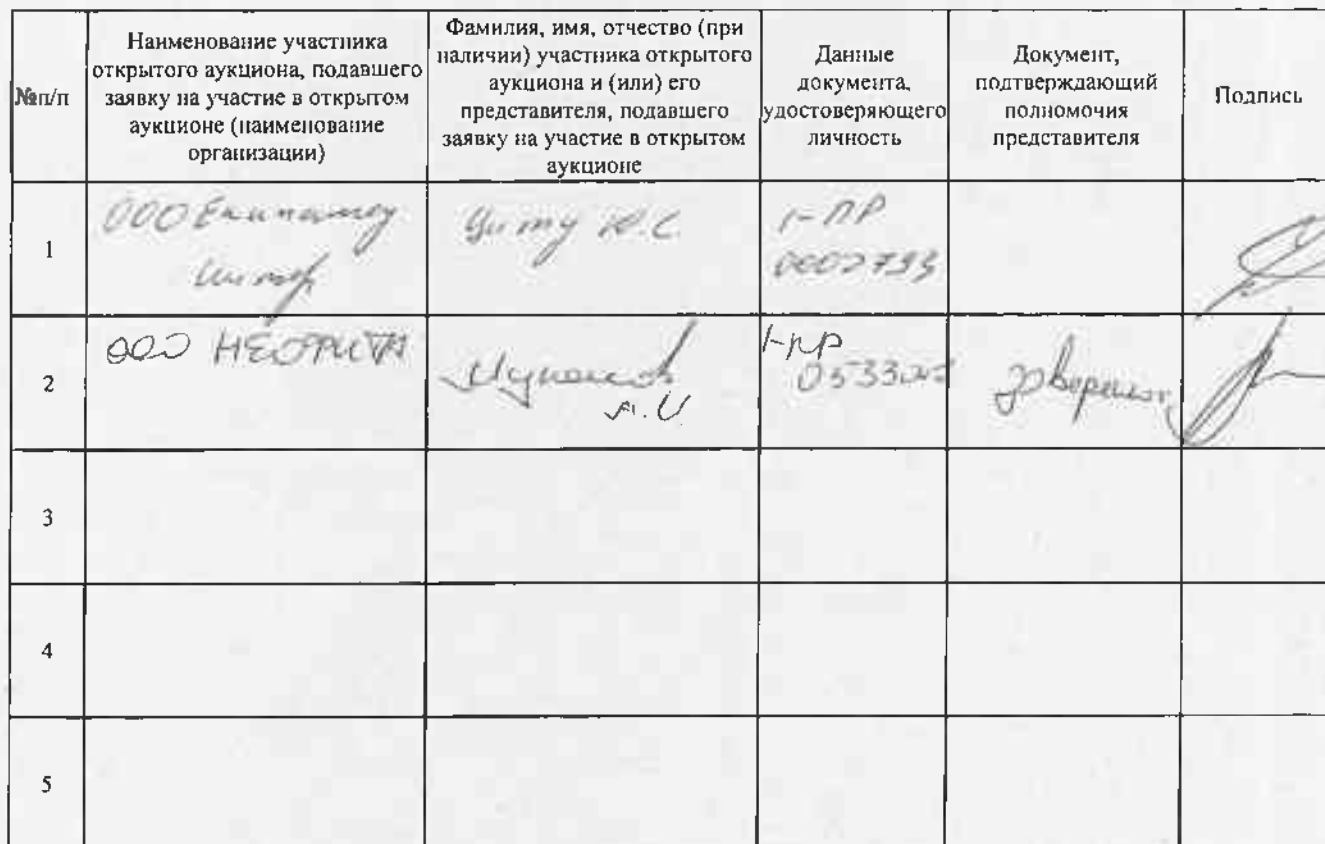 №п/п
Наименование участника
открытого аукциона, подавшего
заявку на участие в открытом
аукционе (наименование
организации)
Фамилия, имя, отчество (при
наличии) участника открытого
аукциона и (или) его
представителя, подавшего
заявку на участие в открытом
аукционе
Данные
документа,
удостоверяющего
личность
Документ,
подтверждающий
полномочия
представителя
Подпись
1
ООО
I-ПР
2
ООО
I-ПР
3
4
5